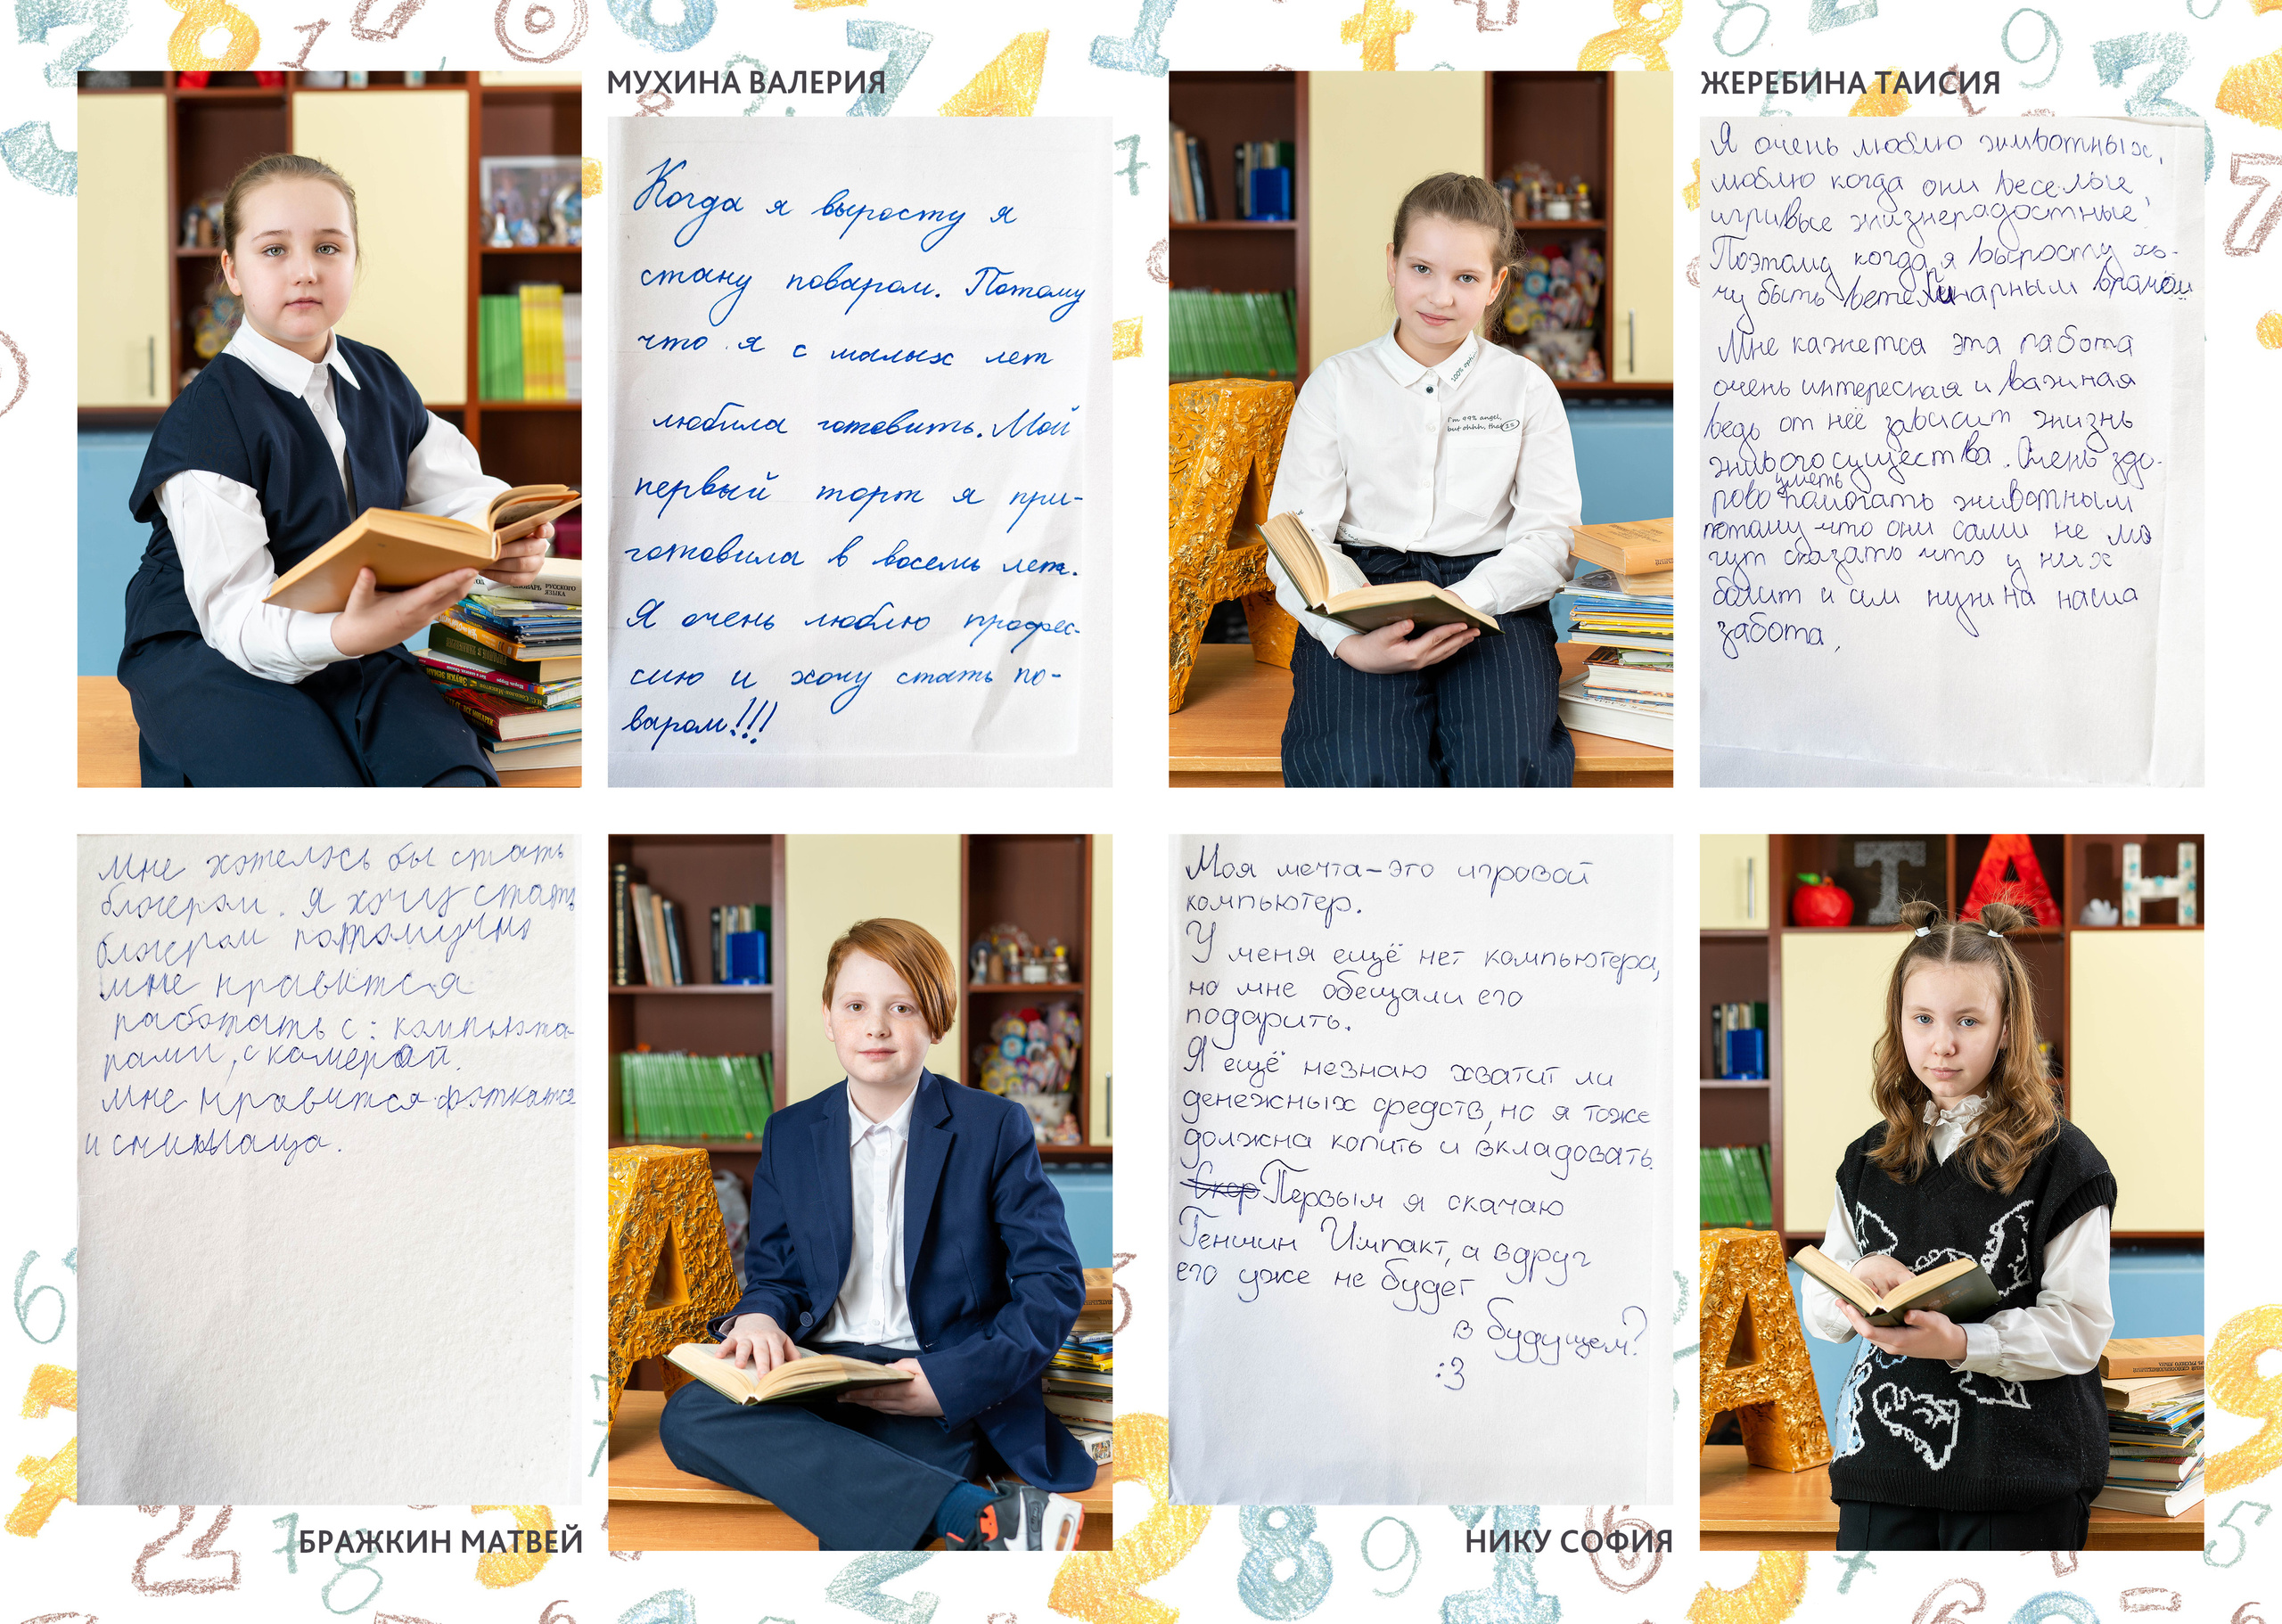 МУХИНА ВАЛЕРИЯ
Когда я вырасту я
стану поваром. Потому
что я с малых лет
любила готовить. Мой
первый торт я при-
готовила в восемь лет.
Я очень люблю профес-
сию и хочу стать по-
варом!!!
ЖЕРЕБИНА ТАИСИЯ
Я очень люблю животных,
люблю когда они веселые
игривые жизнерадостные!
Поэтому когда я выросту хо-
чу быть ветеринарным врачом
Мне кажется эта работа
очень интересная и важная
ведь от неё зависит жизнь
живого существа. Очень здо-
рово уметь помогать животным
потому что они сами не мо
гут сказать что у них
болит и им нужна наша
забота,
I'm 99% angel,
but ohhh, that 1%
Мне хотелось бы стать
блогером. Я хочу стать
блогером потомучно
мне нравится
работать с: компюта-
рами, с камерой.
Мне нравится фоткатся
и
БРАЖКИН МАТВЕЙ
Моя мечта-это игровой
компьютер.
У меня ещё нет компьютера,
но мне обещали его
подарить.
Я ещё незнаю хватит ли
денежных средств, но я тоже
должна копить и вкладовать.
Первым я скачаю
Геншин Импакт, а вдруг
его уже не будет
в будущем?
:3
НИКУ СОФИЯ
Т А Н